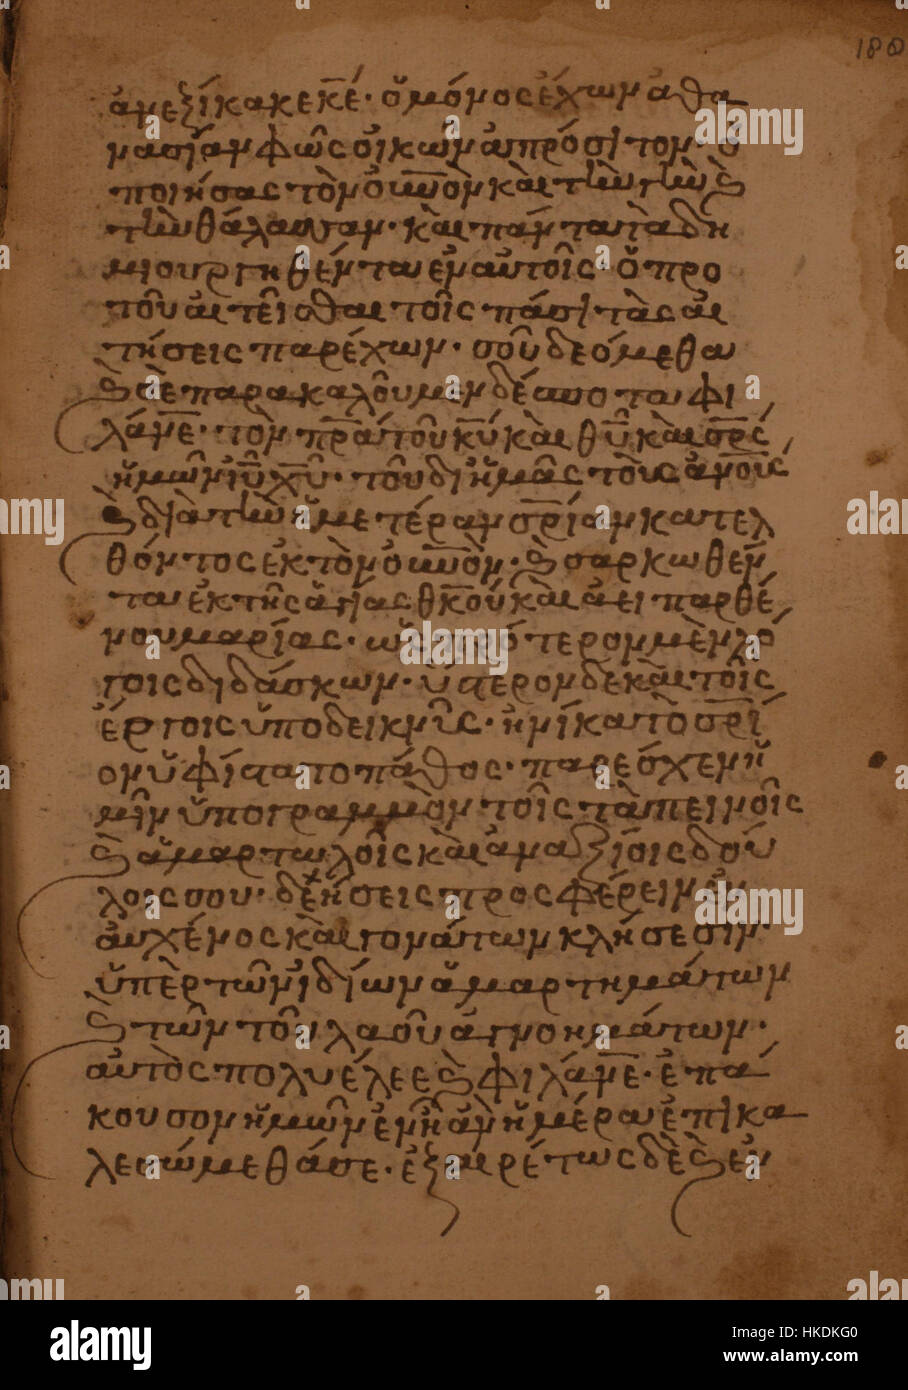 188
ἀνεξίκακε κ̅ε̅· ὁ μόνος ἔχων ἀθα
νασίαν φῶς οἰκῶν ἀπρόσιτον· ὁ
ποιήσας τὸν οὐ̅ν̅ο̅ν καὶ τὴν γὴν ϗ
τὴν θάλασσαν· καὶ πάντα τὰ δη
μιουργηθέντα ἐν αὐτοῖς· ὁ προ
τοῦ αἰτεῖσθαι τοῖς πάσι τὰς αἰ
τήσεις παρέχων· σοῦ δεόμεθα
ϗ σὲ παρακαλοῦμεν δέσποτα φι
λάν̅ε̅· τὸν π̅ρ̅α τοῦ κ̅υ̅ καὶ θ̅υ̅ καὶ σ̅ρ̅ς
ἡμῶν ι̅υ̅ χ̅υ̅· τοῦ δι ἡμᾶς τοὺς ἀν̅ο̅υ̅ς
ϗ διὰ τὴν ἡμετέραν σ̅ρ̅ίαν κατελ
θόντος ἐκ τὸν οὐ̅ν̅ὸν· ϗ σαρκωθέν
τα ἐκ τῆς ἁγίας θ̅κ̅ου καὶ ἀει παρθέ
νου μαρίας· ὡς πρότερον μὲν λό
γοις διδάσκων· ὕστερον δὲ καὶ τοῖς
ἔργοις ὑποδεικνῦς· ἡνίκα τὸ σ̅ρ̅ί
ον ὑφίστατο πάθος· παρέσχεν ἡ
μῖν ὑπογραμμὸν τοῖς ταπεινοῖς
ϗ ἁμαρτωλοῖς καὶ ἀναξίοις δού
λοις σου· δεήσεις προσφέρειν ἐν
αὐχένος καὶ γονάτων κλήσεσιν·
ὑπὲρ τῶν ἰδίων ἁμαρτημάτων
ϗ τῶν τοῦ λαοῦ ἀγνοημάτων·
αὐτὸς πολυέλεε ϗ φιλάν̅ε̅· ἐπά
κουσον ἡμῶν ἐν ἧ ἂν ἡμέρα ἐπικα
λεσώμεθά σε· ἐξαιρέτως δὲ ϗ ἐν
alamy
Image ID: HKDKG0
www.alamy.com